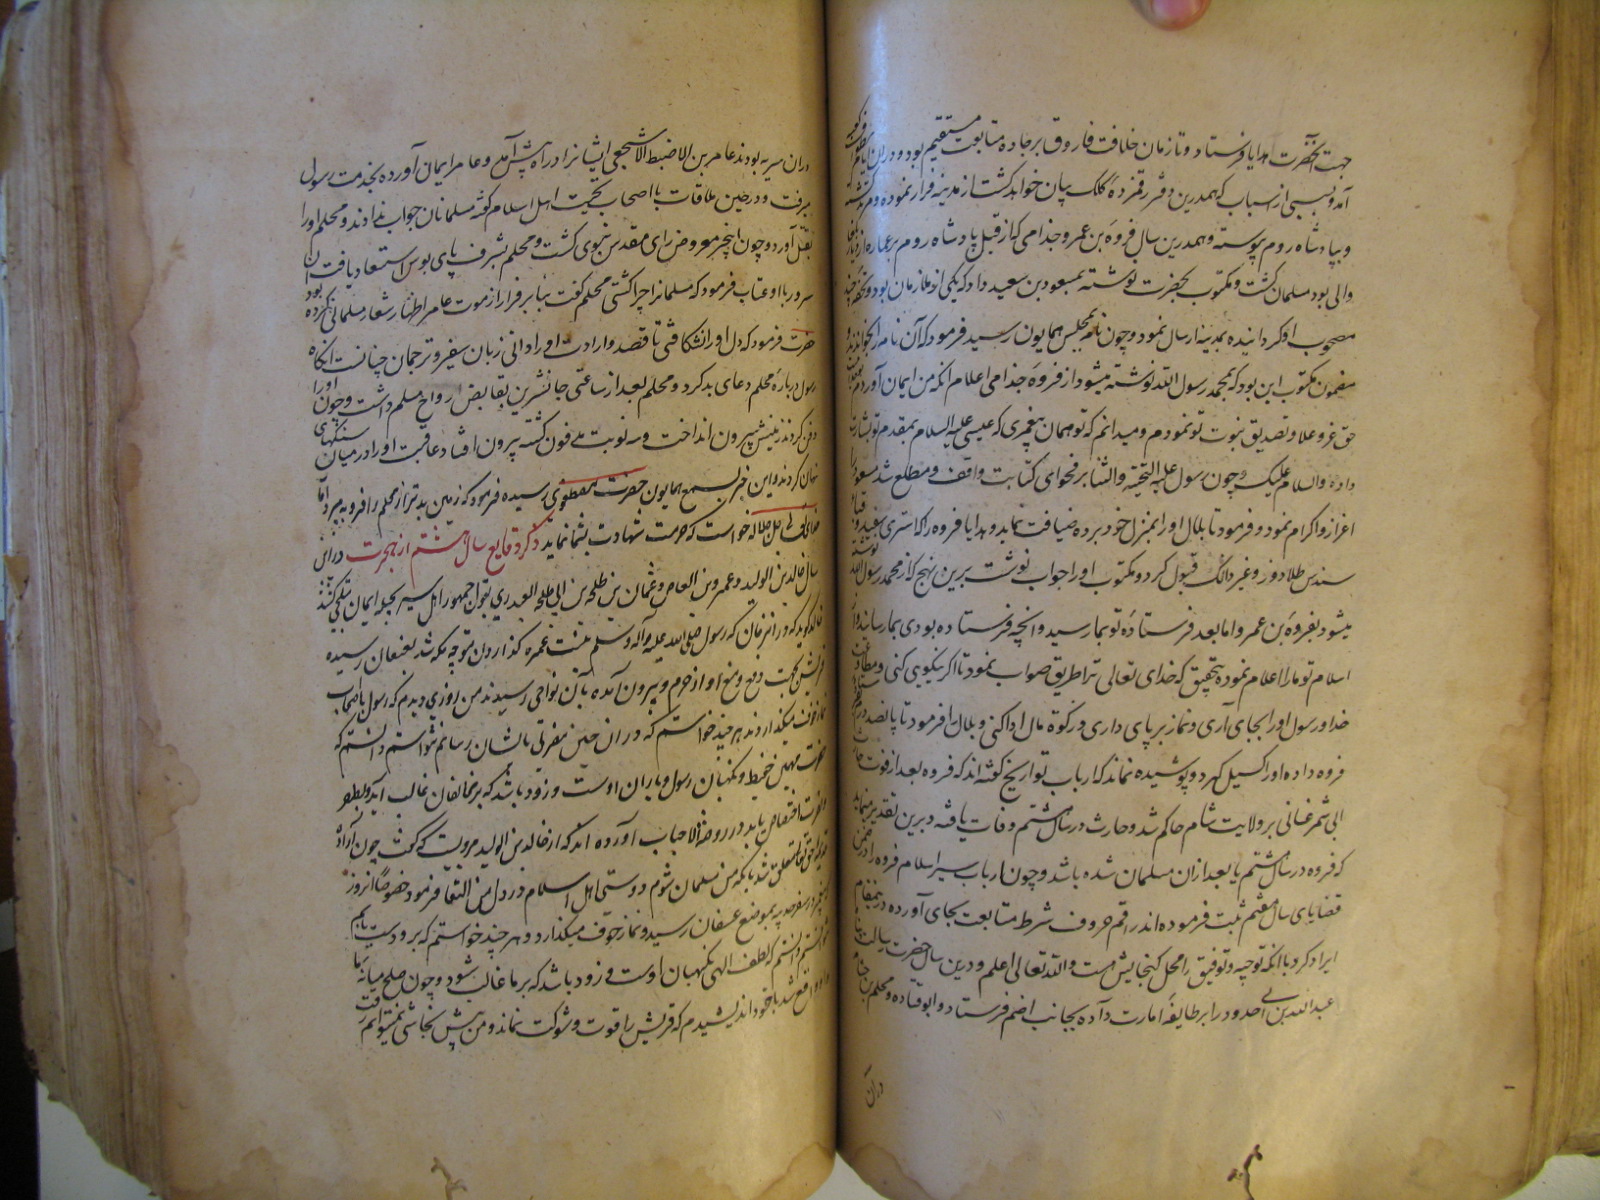 جهت آنحضرت هدایا فرستاد و تا زمان خلافت فاروق بر جاده متابعت مستقیم بود و در ان ایام
آمد و بسیی از اسباب که همدرین دفتر رقمزده کلک بیان خواهد گشت از مدینه فرار نموده
و بپادشاه روم پیوسته و همدرین سال فروه بن عمرو جذامی که از قبل پادشاه روم بر عمان
والی بود مسلمان گشت و مکتوب بحضرت نوشته بمسعود بن سعید داد که یکی از ملازمان بود و تحفه چند
مصحوب او گردانیده بمدینه ارسال نمود و چون نامه بمجلس همایون رسید فرمود که آن نامه را بخواندند و
مضمون مکتوب این بود که بمحمد رسول الله نوشته میشود از فروه جذامی اعلام انکه من ایمان آوردم
حق عز و علا و تصدیق نبوت تو نمودم و میدانم که تو همان پیغمبری که عیسی علیه السلام بمقدم تو بشارت
داده والسلام علیک و چون رسول علیه التحیة والثنا بر فحوای کتابت واقف و مطلع شد مسعود را
اعزاز و اکرام نمود و فرمود تا بلال او را بمنزل خود برده ضیافت نماید و هدایا فروه را که استری سفید و قباء
سندس طلا دوز و غیر ذالک قبول کرد و مکتوب او را جواب نوشت برین نهج که از محمد رسول الله نوشته
میشود بفروه بن عمرو اما بعد فرستاده تو بما رسید و انچه فرستاده بودی بما رسانید و از
اسلام تو ما را اعلام نمود بتحقیق که خدای تعالی ترا طریق صواب نمود تا اگر نیکویی کنی و مطاوعت
خدا و رسول او را بجای آری و نماز بر پای داری و زکوة مال ادا کنی و بلال را فرمود تا پانصد درم
فروه داده او را گسیل کرد و پوشیده نماند که ارباب تواریخ گفته اند که فروه بعد از فوت حارث
ابی شمر غسانی بر ولایت شام حاکم شد و حارث در سال هشتم وفات یافته و برین تقدیر میباید
که فروه در سال هشتم یا بعد ازان مسلمان شده باشد و چون ارباب سیر اسلام فروه را در ضمن
قضایای سال هفتم ثبت فرموده اند راقم حروف شرط متابعت بجای آورده درینمقام
ایراد کرد با انکه توجیه و توفیق را محل گنجایش هست والله تعالی اعلم و درین سال حضرت رسالت
عبدالله بن ابی حدود را بر طایفه امارت داده بجانب اضم فرستاد و ابو قتاده و محلم بن
دران
دران سریه بودند عامر بن الاضبط الاشجعی ایشانرا در راه پیش آمد و عامر ایمان آورده بخدمت رسول
میرفت و در حین ملاقات با اصحاب تحیت اهل اسلام گفته مسلمانان جواب ندادند و محلم او را
بقتل آورد و چون اینخبر معروض رای مقدس نبوی گشت و محلم بشرف پای بوس استسعاد یافت ان
سرور با او عتاب فرمود که مسلمانرا چرا کشتی محلم گفت بنابر فرار از موت عامر اظهار شعار مسلمانی کرده بود
حضرت فرمود که دل او را نشکافتی تا قصد و ارادت او را دانی زبان سفیر و ترجمان جنانست انگاه
رسول درباره محلم دعای بد کرد و محلم بعد از ساعتی جانشیرین بقابض ارواح مسلم داشت و چون او را
دفن کردند زمینش بیرون انداخت و سه نوبت مدفون گشته بیرون افتاد عاقبت او را در میان سنگهای
نهان کردند و این خبر بسمع همایون حضرت مصطفوی رسیده فرمود که زمین بدتر از محلم را فرو میبرد اما
خدایتعالی جل جلاله خواست که حرمت شهادت بشما نماید ذکر وقایع سال هشتم از هجرت درین
سال خالد بن الولید و عمرو بن العاص و عثمان بن طلحه بن ابی طلحه العبدری بقول جمهور اهل سیر بحیله ایمان متحلی گشتند
خالد گوید که دران زمان که رسول صلی الله علیه و آله وسلم بنیت عمره گذاردن متوجه مکه شد بعسفان رسیده
قریش بجهت دفع و منع او از حرم بیرون آمده بآن نواحی رسیدند من روزی دیدم که رسول با اصحاب
نماز خوف میگذاردند هر چند خواستم که دران حین مضرتی بایشان رسانم نتوانستم دانستم که
حضرت مهیمن حفیظ و نگهبان رسول و یاران اوست و زود باشد که بر مخالفان غالب آید و بظفر
و نصرت اختصاص یابد در روضة الاحباب آورده اند که از خالد بن الولید مرویست که گفت چون اراده
حق تعالی متعلق شد بآنکه من مسلمان شوم دوستی اهل اسلام در دل من القا فرمود خصوصا انروز
پیغمبر در سفر حدیبیه بموضع عسفان رسید و نماز خوف میگذارد و هر چند خواستم که بر و دست یابم
نتوانستم دانستم که لطف الهی نگهبان اوست و زود باشد که بر ما غالب شود و چون صلح میانه ما
و او واقع شد با خود اندیشیدم که قریش را قوت و شوکت نماند و من پیش نجاشی نمیتوانم رفت